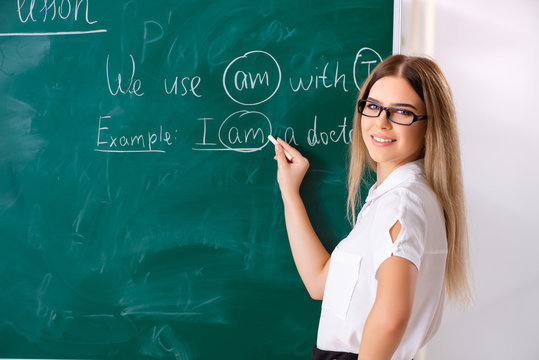 lesson
We use am with I
Example: I am a doctor